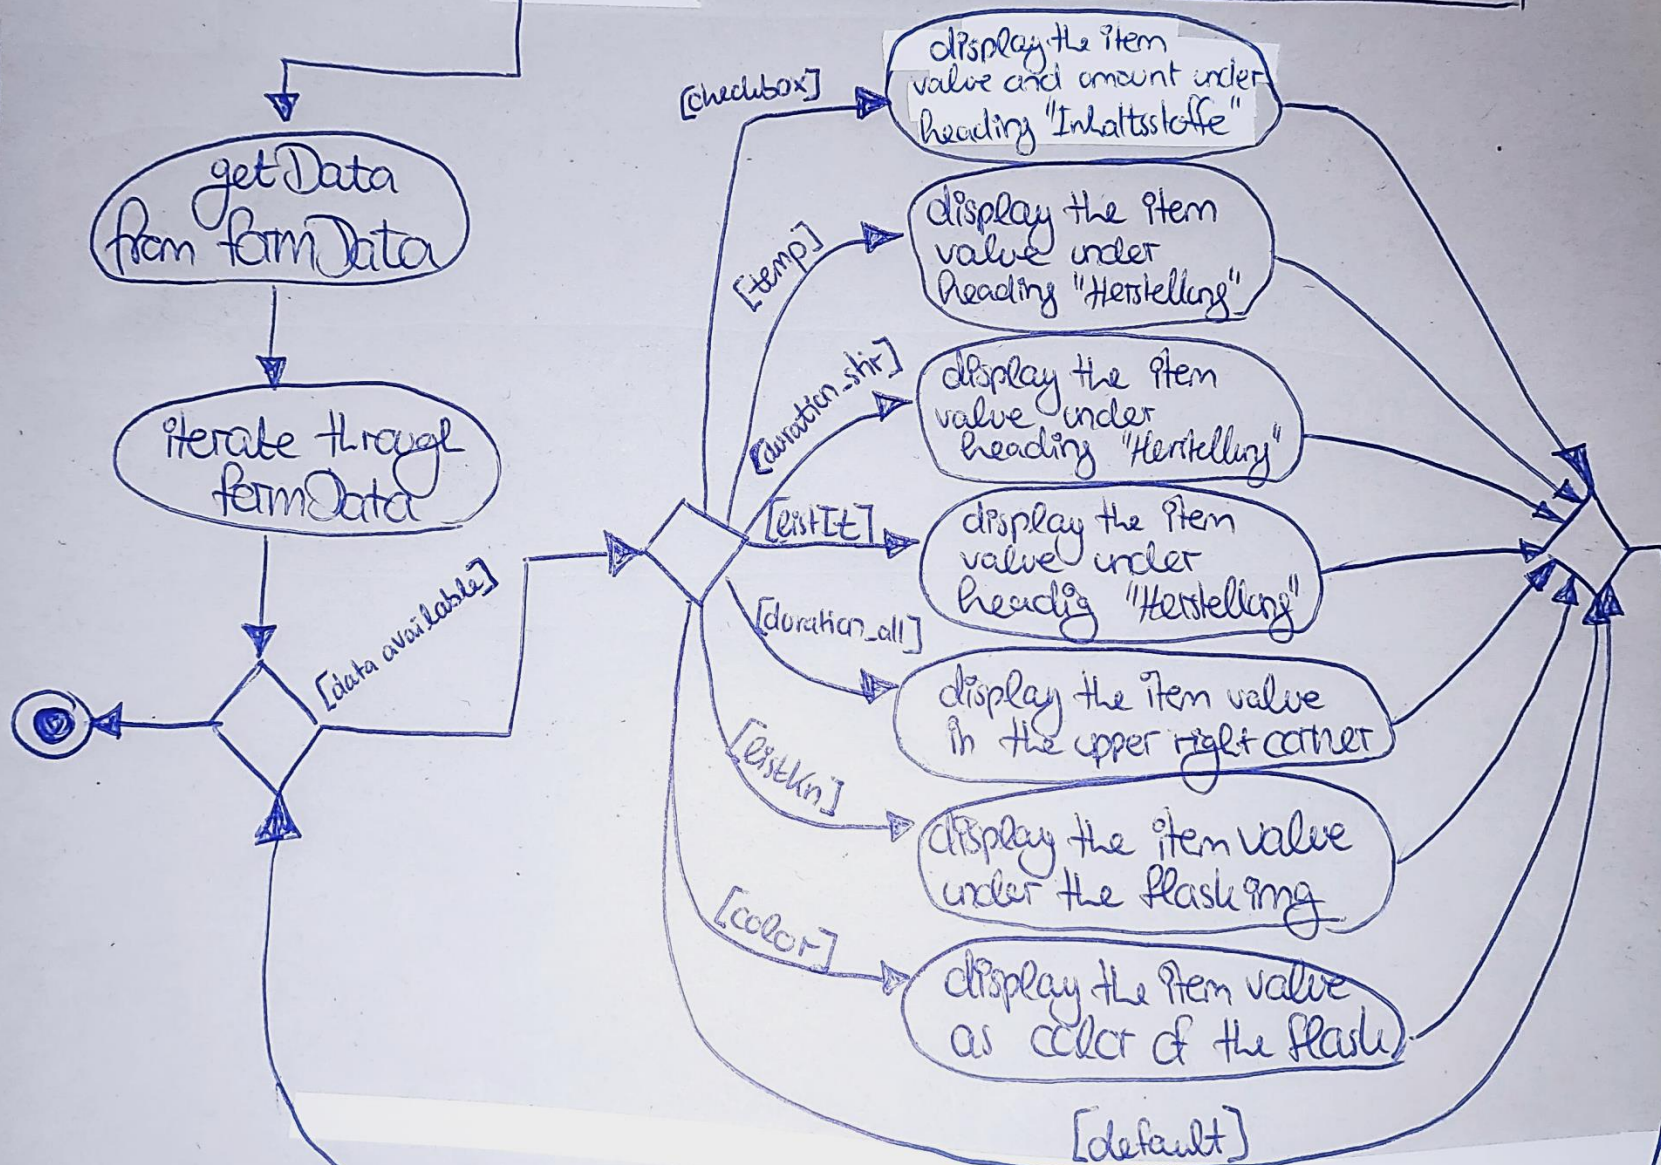 getData
from formData
iterate through
formData
[data available]
[checkbox]
display the item
value and amount under
heading "Inhaltsstoffe"
[temp]
display the item
value under
heading "Herstellung"
[duration_stir]
display the item
value under
heading "Herstellung"
[listIt]
display the item
value under
headig "Herstellung"
[duration_all]
display the item value
in the upper right corner
[listKn]
display the item value
under the flask img
[color]
display the item value
as color of the flask
[default]